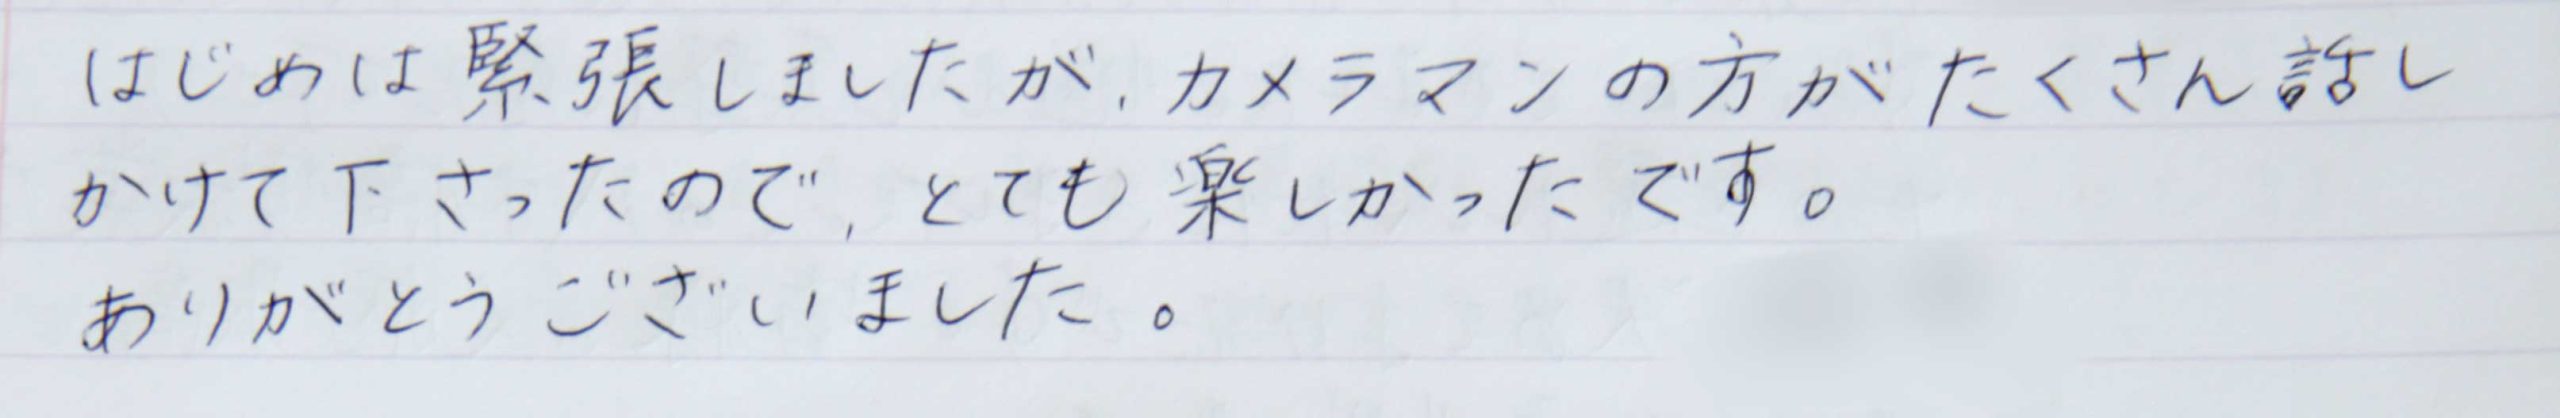 はじめは緊張しましたが、カメラマンの方がたくさん話し
かけて下さったので、とても楽しかったです。
ありがとうございました。